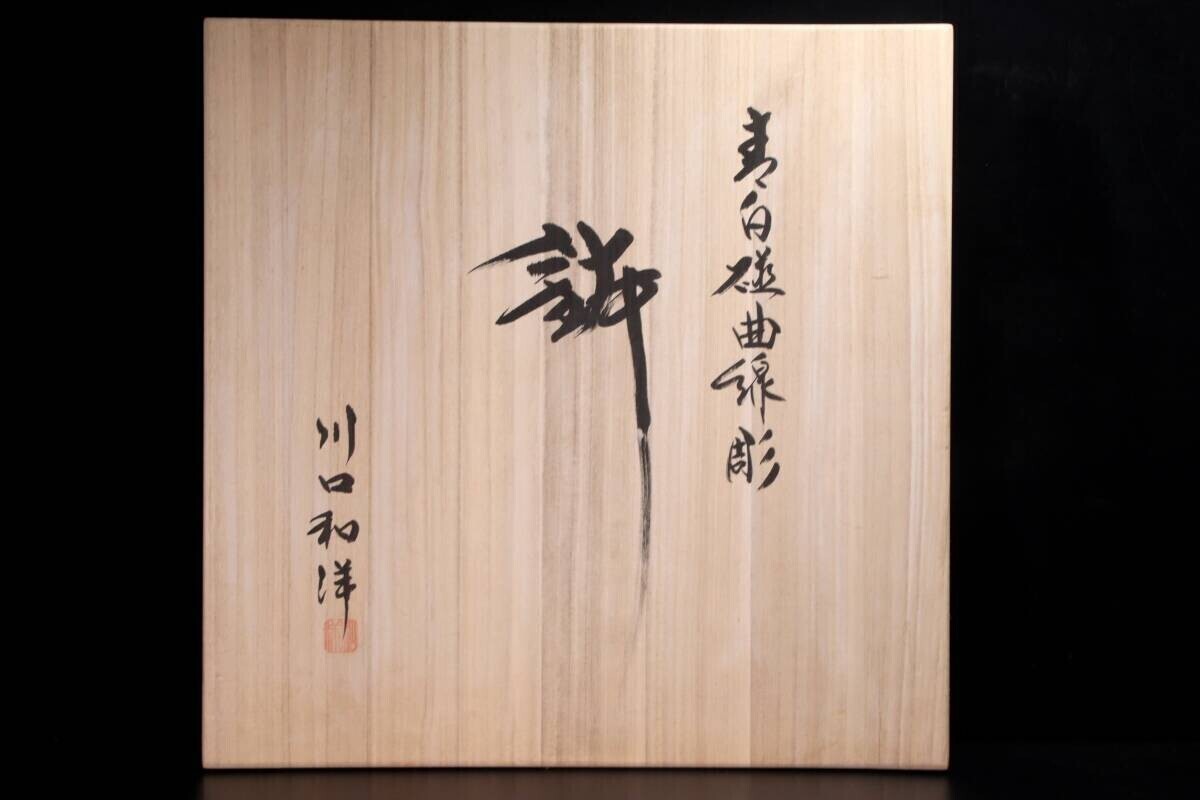 青白磁曲線彫
鉢
川口和洋